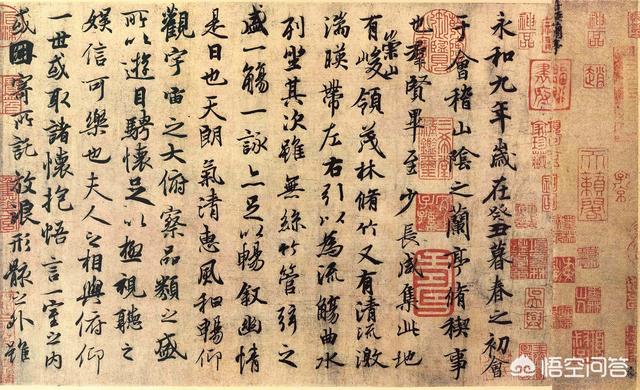 永和九年歲在癸丑暮春之初會
于會稽山陰之蘭亭脩稧事
也羣賢畢至少長咸集此地
有崇山峻領茂林脩竹又有清流激
湍暎帶左右引以為流觴曲水
列坐其次雖無絲竹管弦之
盛一觴一詠亦足以暢敘幽情
是日也天朗氣清惠風和暢仰
觀宇宙之大俯察品類之盛
所以遊目騁懷足以極視聽之
娛信可樂也夫人之相與俯仰
一世或取諸懷抱悟言一室之內
或因寄所託放浪形骸之外雖
天籟閣
悟空问答